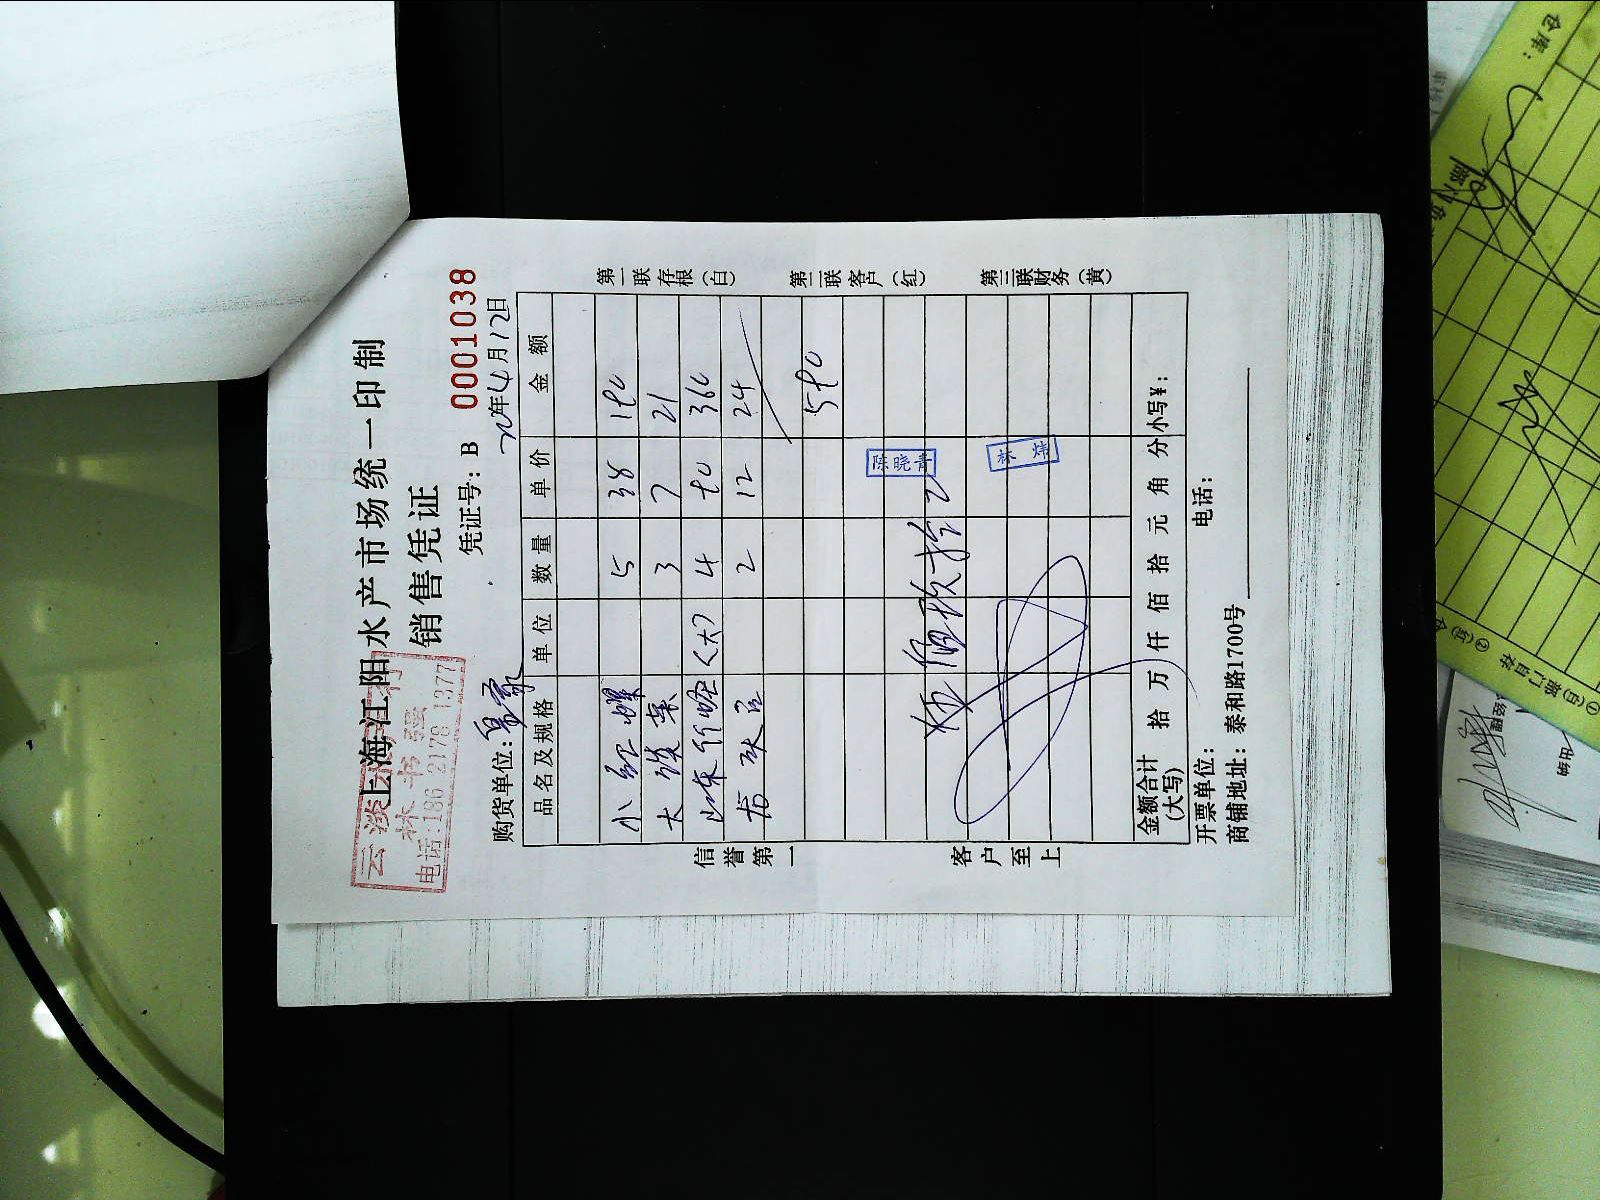 上海江阳水产市场统一印制
销售凭证
林书强
电话:186 2178 1377
凭证号: B 0001038
购货单位:
年4月12日
品名及规格 单位 数量 单价 金额
小红螺 5 38 190
大 3 7 21
山东竹蛏(大) 4 90 360
2 12 24
590
伍佰玖拾
陈晓青
林炜
金额合计(大写) 拾 万 仟 佰 拾 元 角 分 小写¥:
开票单位: 电话:
商铺地址: 泰和路1700号
信誉第一
客户至上
第一联存根(白)
第二联客户(红)
第三联财务(黄)
仓库: